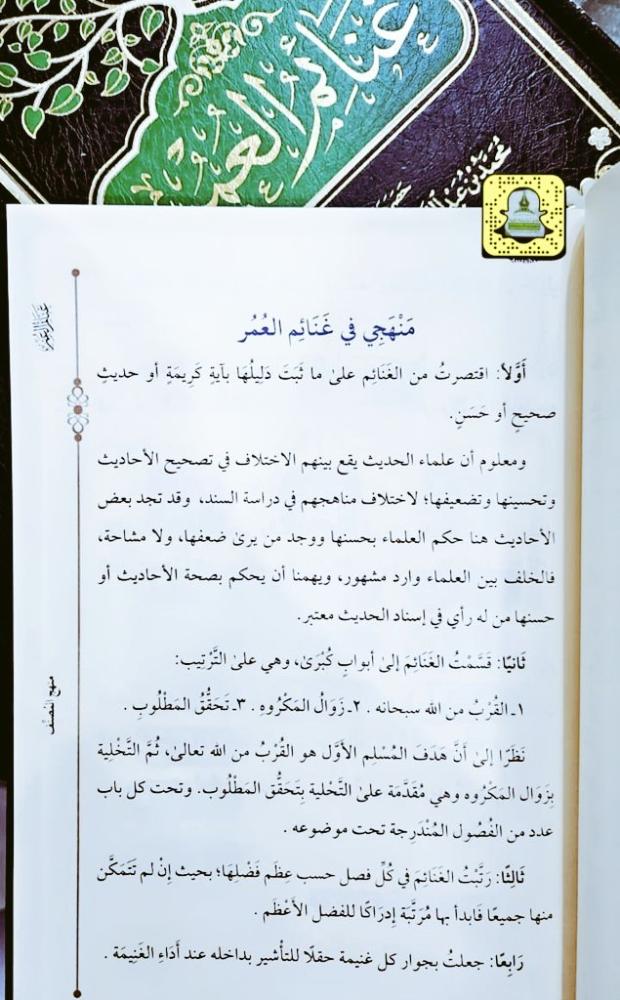 غنائم العمر
محمد بن عبد
غنائم العمر
مَنْهَجِي في غَنَائِم العُمُر
أَوَّلاً: اقتصرتُ من الغَنَائِم علىٰ ما ثَبَتَ دَلِيلُهَا بآيةٍ كَرِيمَةٍ أو حديثٍ
صحيحٍ أو حَسَنٍ.
ومعلوم أن علماء الحديث يقع بينهم الاختلاف في تصحيح الأحاديث
وتحسينها وتضعيفها؛ لاختلاف مناهجهم في دراسة السند، وقد تجد بعض
الأحاديث هنا حكم العلماء بحسنها ووجد من يرىٰ ضعفها، ولا مشاحة،
فالخلف بين العلماء وارد مشهور، ويهمنا أن يحكم بصحة الأحاديث أو
حسنها من له رأي في إسناد الحديث معتبر.
ثَانيًا: قَسَّمْتُ الغَنَائِمَ إلىٰ أبوابٍ كُبْرَىٰ، وهي علىٰ التَّرْتِيب:
١ـ القُرْبُ من الله سبحانه . ٢ـ زَوَالُ المَكْرُوهِ . ٣ـ تَحَقُّقُ المَطْلُوبِ .
نَظَرًا إلىٰ أَنَّ هَدَفَ المُسْلِم الأوَّل هو القُرْبُ من الله تعالىٰ، ثُمَّ التَّخْلِية
بِزَوال المَكْرُوه وهي مُقَدَّمَة علىٰ التَّحْلية بِتَحَقُّق المَطْلُوب. وتحت كل باب
عدد من الفُصُول المُنْدَرِجة تحت موضوعه .
ثَالِثًا: رَتَّبْتُ الغَنَائِمَ في كُلِّ فصل حسب عِظَم فَضْلِهَا؛ بحيث إِنْ لم تَتَمَكَّن
منها جميعًا فَابدأ بها مُرَتَّبَة إِدرَاكًا للفضل الأَعْظَم .
رَابِعًا: جعلتُ بجوار كل غنيمة حقلًا للتأْشير بداخله عند أَدَاءِ الغَنِيمَة .
منهج المُصنِّف